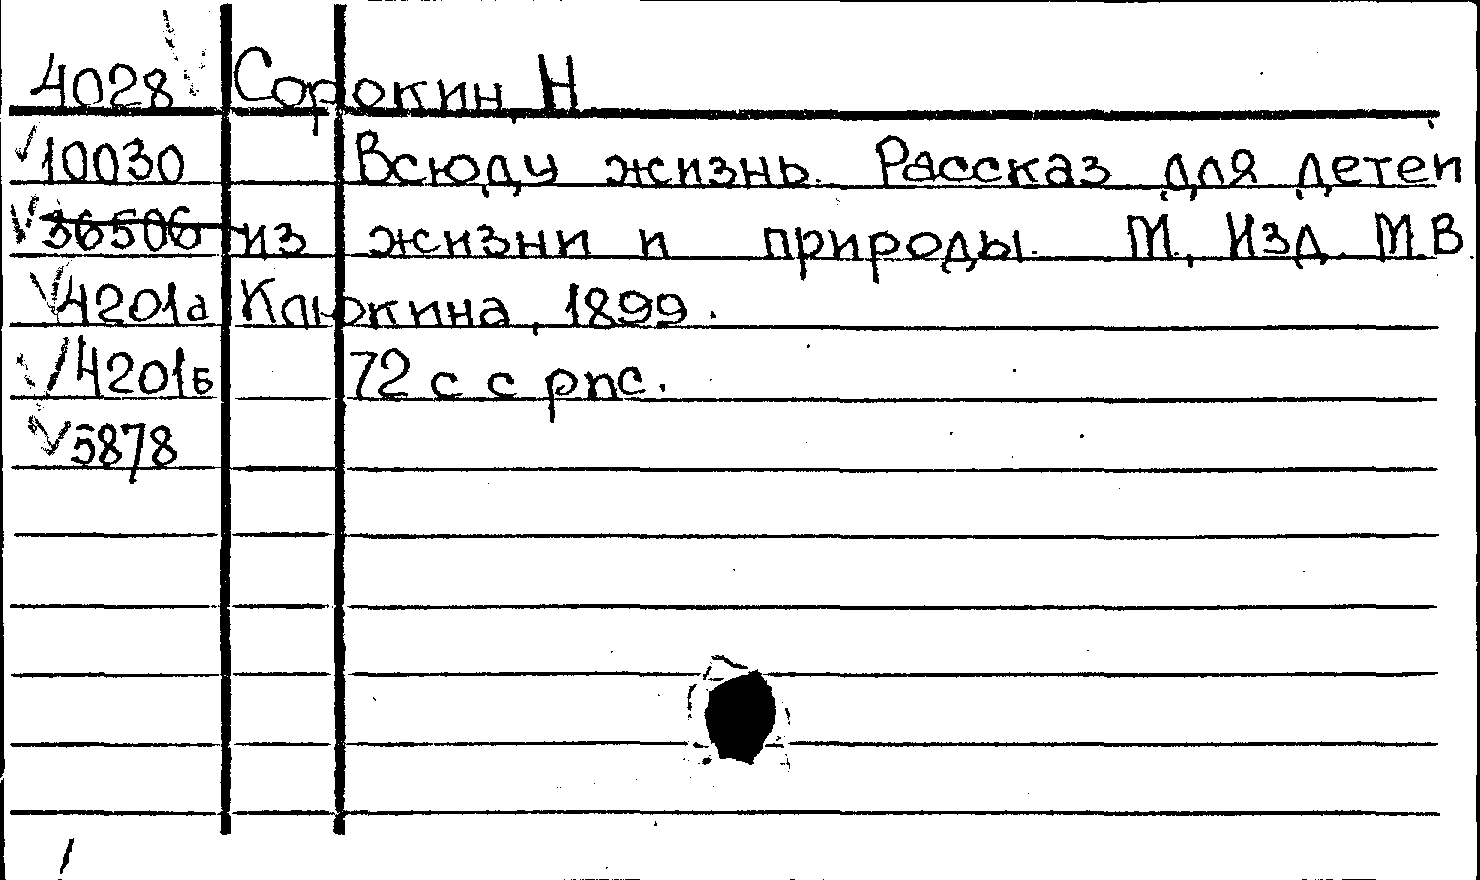 4028 Сорокин, Н
10030 Всюду жизнь. Рассказ для детей
36506 из жизни и природы. М., Изд. М.В.
4201а Клюкина, 1899.
4201б 72 с с рис.
5878